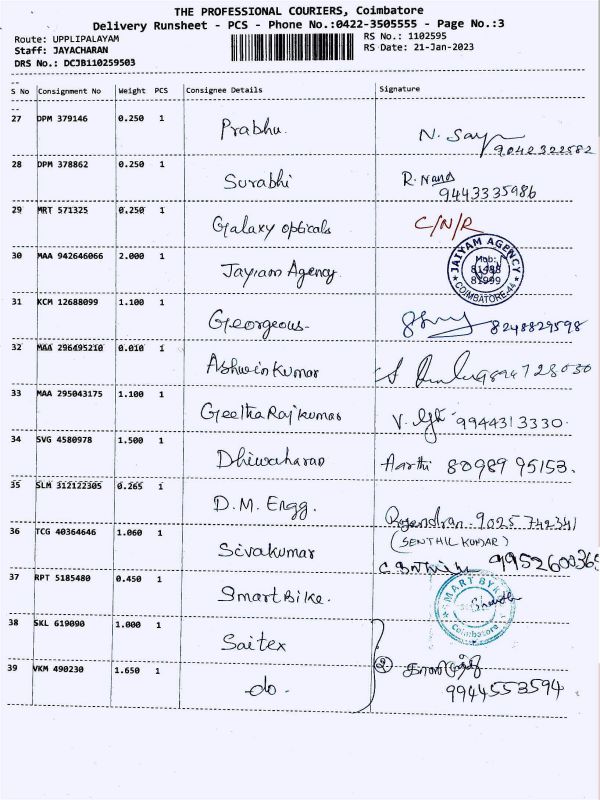 THE PROFESSIONAL COURIERS, Coimbatore
Delivery Runsheet - PCS - Phone No.:0422-3505555 - Page No.:3
Route: UPPLIPALAYAM RS No.: 1102595
Staff: JAYACHARAN RS Date: 21-Jan-2023
DRS No.: DCJB110259503
S No Consignment No Weight PCS Consignee Details Signature
27 DPM 379146 0.250 1 Prabhu.
9042322582
28 DPM 378862 0.250 1 Surabhi R. Nand
9443335986
29 MRT 571325 0.250 1 Galaxy opticals C/N/R
30 MAA 942646066 2.000 1 Jayram Agency.
JAIYAM AGENCY
Mob:
COIMBATORE-44
31 KCM 12688099 1.100 1 Georgeous- 8248829598
32 MAA 296495210 0.010 1 Ashwin Kumar
33 MAA 295043175 1.100 1 Geetha Rajkumar 9944313330.
34 SVG 4580978 1.500 1 Dhiwaharan Aarthi 80989 95153.
35 SLM 312122305 0.265 1 D.M. Engg. Rajendran. 9025742341
(SENTHIL KUMAR)
36 TCG 40364646 1.060 1 Sivakumar 9952600365
37 RPT 5185480 0.450 1 Smart Bike.
SMART BYKE
Coimbatore
38 SKL 619090 1.000 1 Saitex
39 VKM 490230 1.650 1 do. 2
9944553594